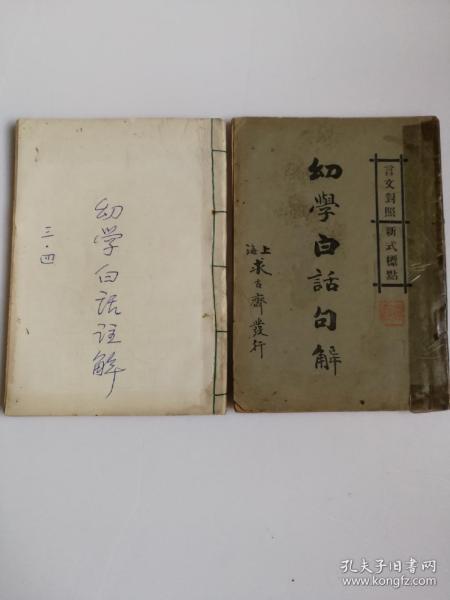 幼學白話註解
三·四
言文對照 新式標點
幼學白話句解
上海
求古齋發行
孔夫子旧书网
www.kongfz.com